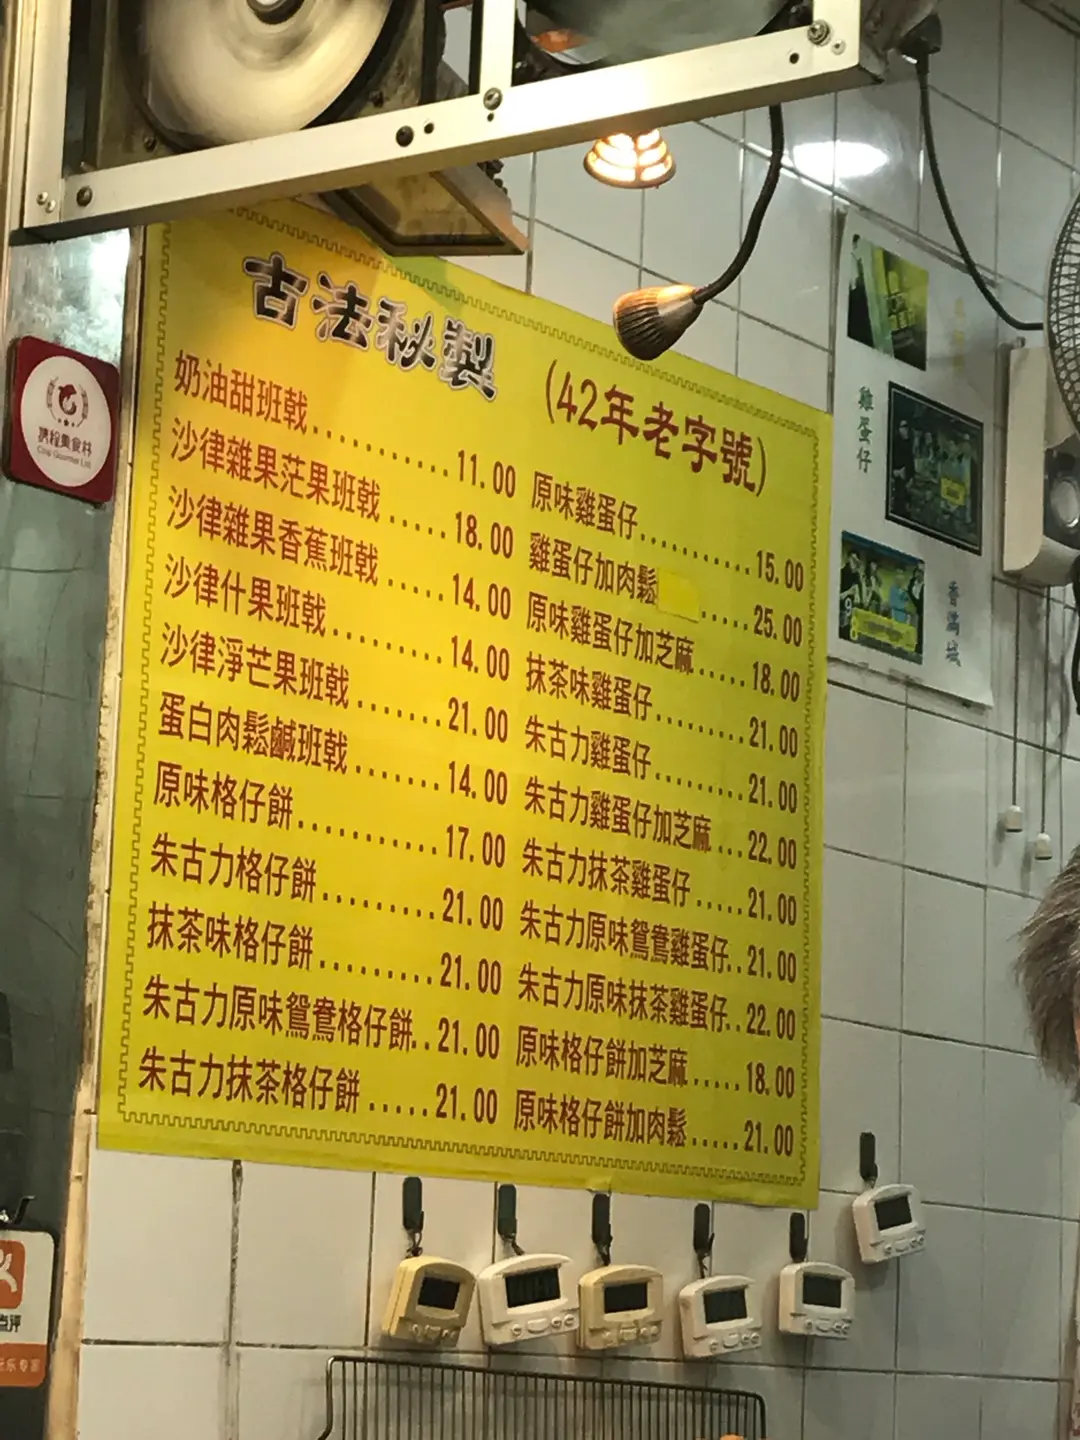 古法秘製
(42年老字號)
奶油甜班戟.............11.00
沙律雜果茫果班戟.....18.00
沙律雜果香蕉班戟.....14.00
沙律什果班戟.........14.00
沙律淨芒果班戟.......21.00
蛋白肉鬆鹹班戟.......14.00
原味格仔餅...........17.00
朱古力格仔餅.........21.00
抹茶味格仔餅.........21.00
朱古力原味鴛鴦格仔餅..21.00
朱古力抹茶格仔餅.....21.00
原味雞蛋仔...........15.00
雞蛋仔加肉鬆.....25.00
原味雞蛋仔加芝麻.....18.00
抹茶味雞蛋仔.........21.00
朱古力雞蛋仔.........21.00
朱古力雞蛋仔加芝麻...22.00
朱古力抹茶雞蛋仔.....21.00
朱古力原味鴛鴦雞蛋仔..21.00
朱古力原味抹茶雞蛋仔..22.00
原味格仔餅加芝麻.....18.00
原味格仔餅加肉鬆.....21.00
携程美食林
雞蛋仔
香滿城
点评